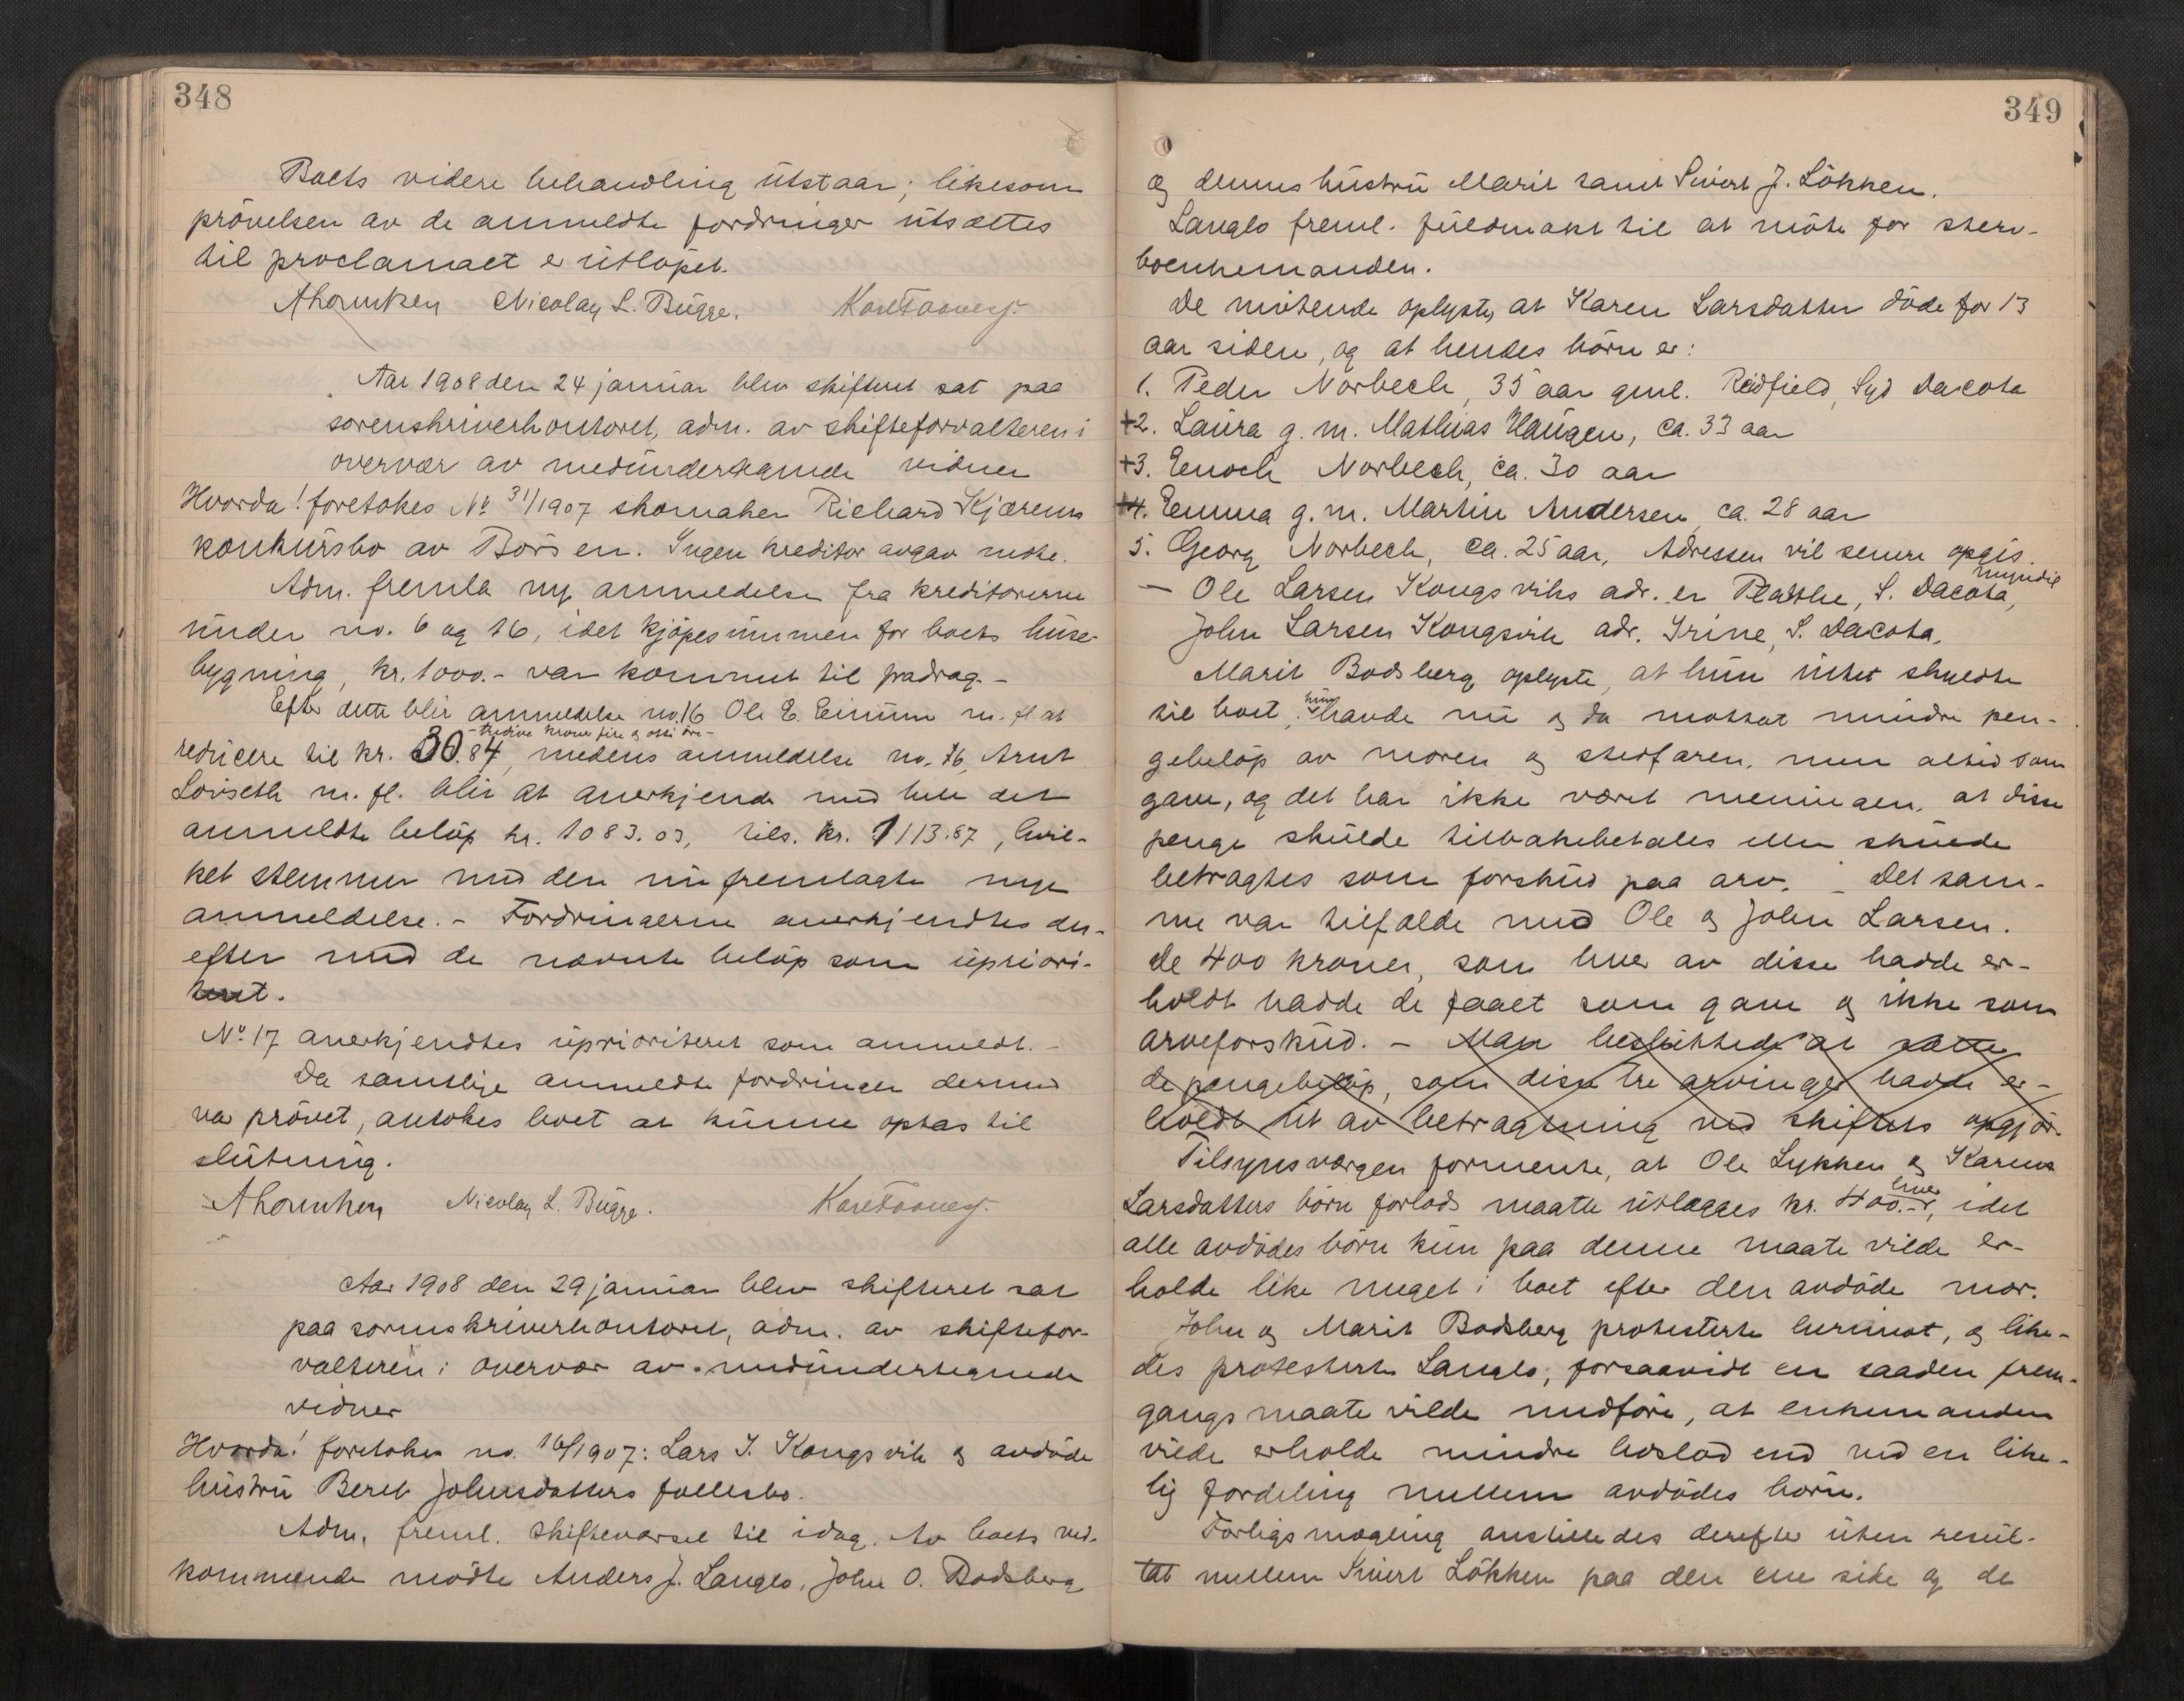 348
Boets videre behandling utstaar; likesom
prövelsen av de anmeldte fordringer utsættes
til proclamaet er utlöpet.
Nicolay L. Bugge.
Aar 1908 den 24 januar blev skifteret sat paa
sorenskriverkontoret, adm. av skifteforvalteren i
overvær av medundertegnede vidner
Hvorda! foretokes No 31/1907 skomaker Richard Kjærens
konkursbo av Börsen. Ingen kreditor avgav möte.
Adm. fremla ny anmeldelse fra kreditorerne
under no. 6 og 16, idet kjöpesummen for boets huse-
bygning, kr. 1000.- var kommet til fradrag.-
Efter dette blir anmeldelse no. 16 Ole E. Einum m. fl at
-tredive kroner fire og otti öre-
reducere til kr. 30.84, medens anmeldelse no. 76, Arnt
Lovseth m. fl. blir at anerkjende med hele det
anmeldte belöp kr. 1083.03, tils. kr. 1113.87, hvil-
ket stemmer med den nu fremlagte nye
anmeldelse.- Fordringerne anerkjendtes der-
efter med de nævnte belöp som upriori-
tert.
No 17 anerkjendtes uprioriteret som anmeldt.-
Da samtlige anmeldte fordringer dermed
var prövet, antokes boet at kunne optas til
slutning.
Nicolay L. Bugge.
Aar 1908 den 29 januar blev skifteret sat
paa sorenskriverkontoret, adm. av skiftefor-
valteren i overvær av medundertegnede
vidner
Hvorda! foretokes no. 16/1907: Lars J. Kongsvik og avdöde
hustru Beret Johnsdatters fællesbo.
Adm. freml. skiftevarsel til idag. Av boets ved-
kommende mödte Anders J. Langlo, John O. Bodsberg
349
og dennes hustru Marit samt Sivert J. Lökken.
Langlo freml. fuldmakt til at möte for sterv-
boenkemanden.
De mötende oplyste, at Karen Larsdatter döde for 13
aar siden, og at hendes börn er:
1. Peder Norbech, 35 aar gml. Redfield, Syd Dacota
+2. Laura g. m. Mathias Haugen, ca. 33 aar
+3. Enoch Norbech, ca. 30 aar
+4. Emma g. m. Martin Andersen ca. 28 aar
5. Georg Norbech, ca. 25 aar, Adressen vil senere opgis.
myndig
- Ole Larsen Kongsviks adr. er Plathe, S. Dacota,
John Larsen Kongsvik adr. Irine, S. Dacota.
Marit Bodsberg oplyste, at hun intet skyldte
hun
til boet, havde nu og da motat mindre pen-
gebelöp av moren og stedfaren, men altid som
gave, og det har ikke været meningen, at disse
penge skulde tilbakebetales eller skulde
betragtes som forskud paa arv. - Det sam-
me var tilfælde med Ole og John Larsen.
De 400 kroner, som hver av disse hadde er-
holdt hadde de faaet som gave og ikke som
arveforskud. - Man besluttede at sætte
de pengebelöp, som disse tre arvinger hadde er-
holdt ut av betragtning ved skiftets opgjör.
Tilsynsværgen formente, at Ole Lykken og Karens
hver
Larsdatters börn forlods maatte utlægges kr. 400.-, idet
alle avdödes börn kun paa denne maate vilde er-
holde like meget i boet efter den avdöde mor.
John og Marit Bodsberg protesterte herimot, og like-
des protesterte Langlo, forsaavidt en saaden frem-
gangsmaate vilde medföre, at enkemanden
vilde erholde mindre boslod end ved en like-
lig fordeling mellem avdödes börn.
Forligsmægling anstilledes derefter uten resul-
tat mellem Sivert Lökken paa den ene side og de